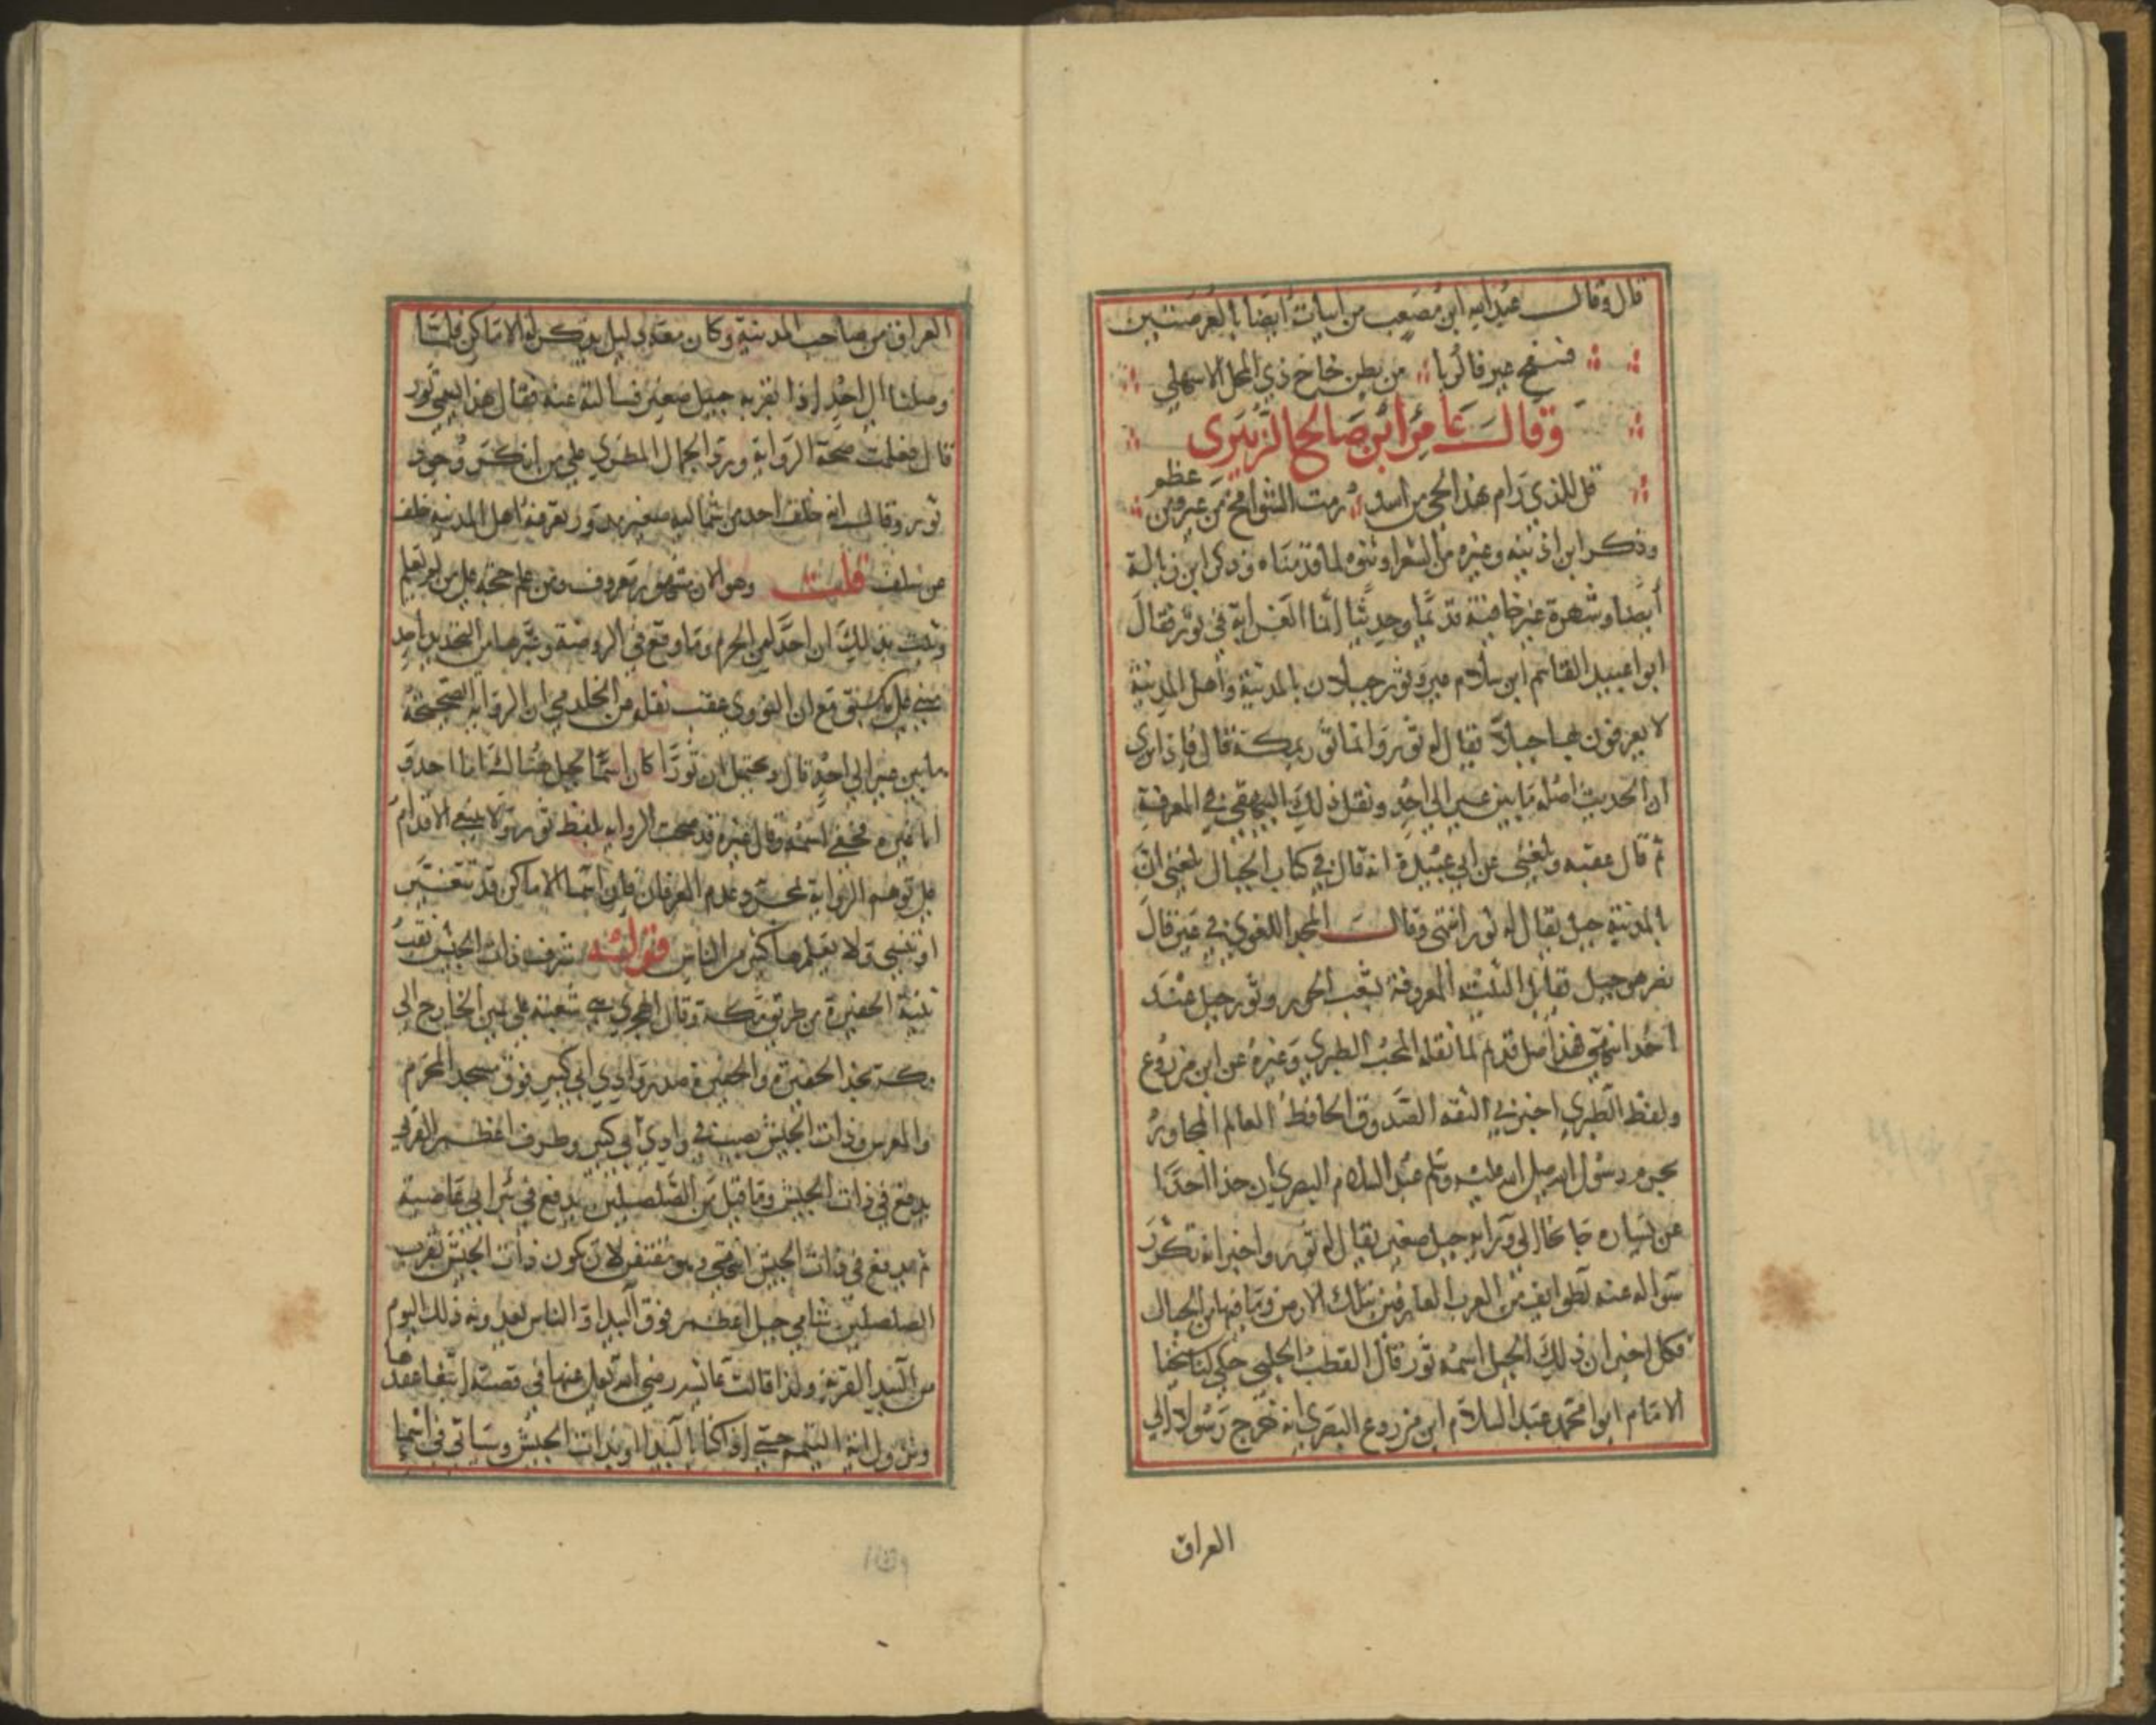 قال وقال عبد الله ابن مصعب من ابيات ايضا بالعرصتين
فسفح عير فالربا من بطن خاخ ذي المحل الاسهلي
وقال عامر ابن صالح الزبيري
قل للذي رام هذا الحي من اسد رمت الشوامخ من عير ومن عظم
وذكر ابن اذينه وغيره من الشعرا ونثوه لما قدمناه وذكر ابن زبالة
أيضا وشهرة عير خافية قديما وحديثا إنما الغرابة في ثور فقال
ابوا عبيد القاسم ابن سلام عير وثور جبلان بالمدينة وأهل المدينة
لا يعرفون بها جبلا يقال له ثور وانما ثور بمكة قال فاذا نرى
ان الحديث اصله ما بين عير الى احد ونقل ذلك البيهقي في المعرفة
ثم قال عقبه وبلغني عن ابي عبيدة انه قال في كتاب الجبال بلغني ان
بالمدينة جبل يقال له ثور انتهى وقال المجد اللغوي في عير قال
نصر هو جبل يقابل الثنية المعروفة بشعب الخوز وثور جبل عند
احد انتهى فهذا اصل قديم لما نقله المحب الطبري وغيره عن ابن مزروع
ولفظ الطبري اخبرني الثقه الصدوق الحافظ العالم المجاور
بحرم رسول الله صلى الله عليه وسلم عبد السلام البصري ان حذا احدا
عن يساره جانحا الى ورايه جبل صغير يقال له ثور واخبر انه تكرر
سواله عنه لطوايف من العرب العارفين بتلك الارض وما فيها من الجبال
فكل اخبر ان ذلك الجبل اسمه ثور قال القطب الحلبي حكي لنا شيخنا
الامام ابوا محمد عبد السلام ابن مزروع البصري انه خرج رسولا الى
العراق
العراق من صاحب المدينة وكان معه دليل يذكر له الاماكن فلما
وصلنا الى احد اذا بقربه جبل صغير فسالته عنه فقال هذا يسمى ثور
قال فعلمت صحة الرواية ورد الجمال المطري على من انكر وجود
ثور وقال انه خلف احد من شماليه صغير مدور يعرفه اهل المدينه خلف
عن سلف قلت وهو الان مشهور معروف ومن علم حجة على من لم يعلم
وثبت بذلك ان احدا من الحرم وما وقع في الروضة وغيرها من التحديد باحد
مبني على ما سبق مع ان النووي عقب نقله من الخلد في ان الرواية الصحيحة
ما بين عير الى احد قال ويحتمل ان ثورا كان اسما لجبل هناك اما احد و
اما غيره فخفي اسمه وقال غيره قد صحت الرواية بلفظ ثور ولا ينبغي الاقدام
على توهيم الرواية بمجرد عدم العرفان فان اسما الاماكن قد تتغير
او تنسى ولا يعلمها كثير من الناس قوله شرف ذات الجيش نقب
ثنية الحفيرة من طريق مكة وقال الهجري هي شعبة على يمين الخارج الى
مكة بحذا الحفيرة والحفيرة صدر وادي ابي كبير فوق مسجد المحرم
والمعرس وذات الجيش يصب في وادي ابي كبير وطرف اعظم الغربي
يدفع في ذات الجيش وما قبل من الصلصلين يدفع في بئر ابي عاصية
ثم يدفع في ذات الجيش انتهى وهو مقتضي لان تكون ذات الجيش بقرب
الصلصلين بثنامي جبل اعظم فوق البيدا والناس يعدونه ذلك اليوم
من البيدا لقربه ولذا قالت عائشه رضي الله تعالى عنها في قصة انقطاع عقدها
ونزول اية التيمم حتى اذا كنا بالبيدا او بذات الجيش وسياتي في اسما